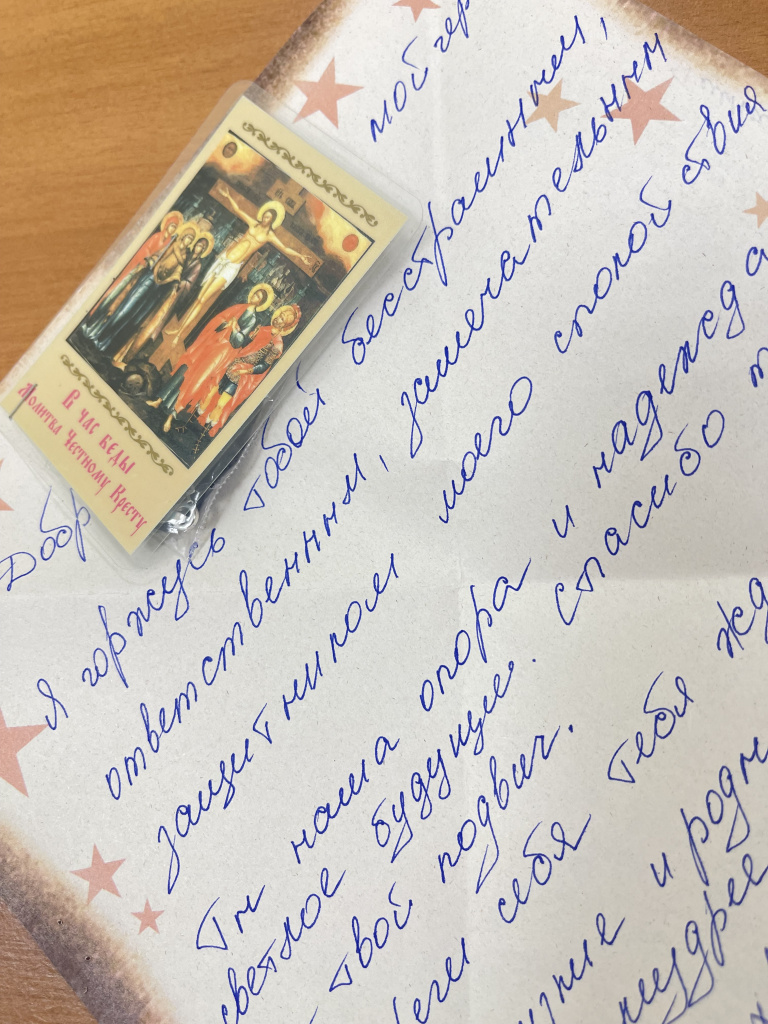 мой
В час беды
Молитва Честному Кресту
Я горжусь тобой бесстрашным,
ответственным, замечательным
защитником моего спокойствия
Ты наша опора и надежда
светлое будущие. Спасибо
твой подвиг.
себя тебя
и
мудрее